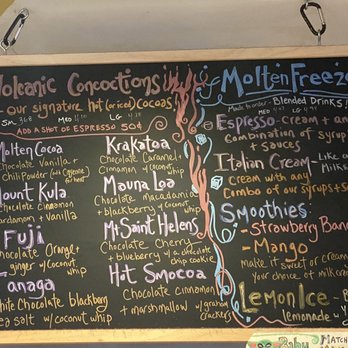 Volcanic Concoctions
- our signature hot (or iced) cocoas
SM 3.68 MED LG
ADD A SHOT OF ESPRESSO 50¢
Molten Cocoa
Chocolate Vanilla +
Chili Powder
Mount Kula
Chocolate Cinnamon
Cardamon + Vanilla
Fuji
Chocolate Orange +
ginger w/coconut
whip
Tanaga
White Chocolate blackberry
sea salt w/coconut whip
Krakatoa
Chocolate Caramel +
Cinnamon w/coconut
whip
Mauna Loa
Chocolate macadamia
+ blackberry w/coconut
whip
Mt Saint Helens
Chocolate Cherry
+ blueberry w/a chocolate
chip cookie
Hot Smocoa
Chocolate cinnamon
+ marshmallow w/graham
crackers
Molten Freeze
Made to order - Blended Drinks!
MED LG
Espresso - Cream + an
combination of syrup
+ sauces
Italian Cream - Like a
Milks
cream with any
Combo of our syrups + s
Smoothies -
- Strawberry Bana
- Mango
make it sweet or cream
your choice of milk
Lemon Ice -
lemonade
MATCH